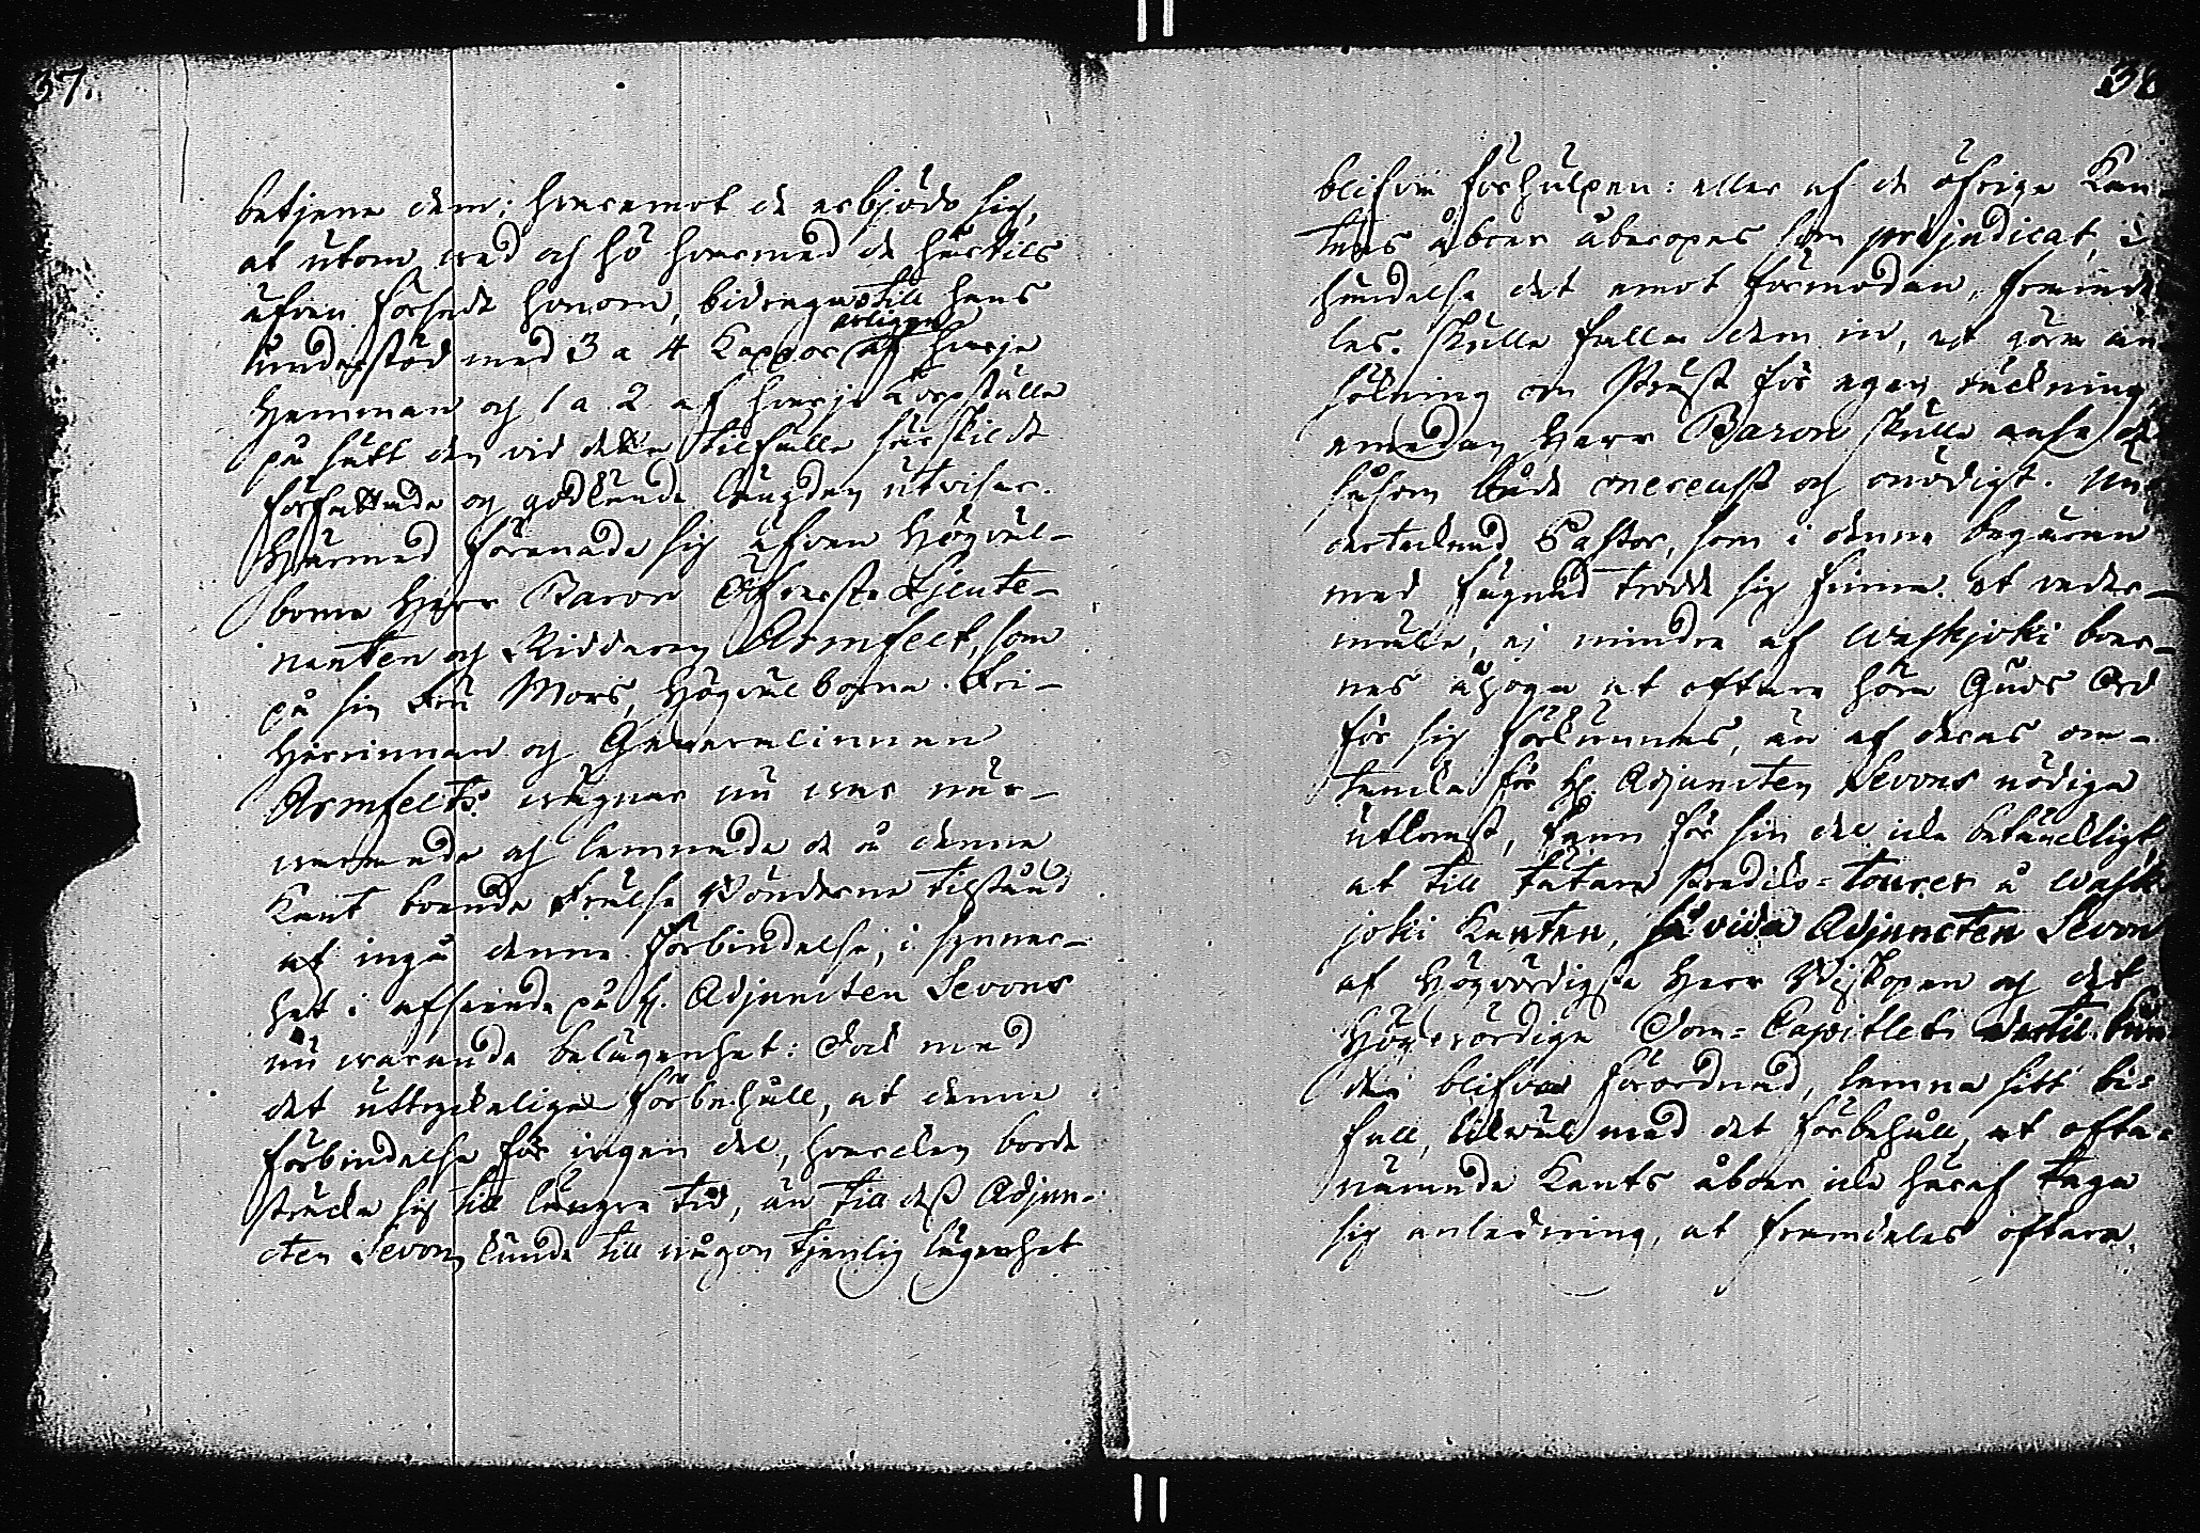 37.
betjena dem; hvaremot de erbjödo sig,
at utom wed och hö hvarmed de härtils
äfven försedt honom, bidraga till hans
årligen
understöd med 3 a 4 Kappor af hvarje
Hemman och 1 a 2 af hvarje Torpställe
på sätt den vid detta tilfälle särskildt
författade och godkände längden utvisar.
Härmed förenade sig äfven Högväl-
borne Herr Baron Öfverste Lieute-
nanten och Riddaren Armfelt, som
på sin Fru Mors, Högvälborna Fri-
Herrinnan och Generalinnan
Armfelts wägnar nu war när-
warande och lemnade de å denna
Kant boende Frälse Bönderne tilstånd
at ingå denna förbindelse, i synner-
het i afseende på H. Adjuncten Sevons
nu warande belägenhet: Dock med
det uttryckeliga förbehåll, at denna
förbindelse för ingen del, hvarken borde
sträcka sig till längre tid, än till dess Adjun-
cten Sevon kunde till någon tjenlig lägenhet
38
blifva förhulpen: eller af de öfrige Kan-
tens åboer åberopas som præjudicat, i
händelse det emot förmodan, framde-
les skulle falla dem in, at göra an-
sökning om Präst för egen räckning,
emedan Herr Baron skulle anse det
såsom både onereust och onödigt. Un-
dertecknad Pastor, som i denna begäran
med fägnad trodde sig finna et veder-
mäle, ej mindre af Waskjoki boer-
nes åhoga at oftare höra Guds Ord
för sig förkunnas, än af deras om-
tanka för H. Adjuncten Sevons nödiga
utkomst, fann för sin del icke betänkligt,
at till tätare Prediko-tourer å Wask-
joki Kanten, så vida Adjuncten Sevon
af Högvördigste Herr Biskopen och det
Högvördiga Dom-Capitlet dertil kun-
de blifva förordnad, lemna sitt bi-
fall, likväl med det förbehåll, at ofta-
nämnde Kants åboer icke häraf taga
sig anledning, at framdeles oftare